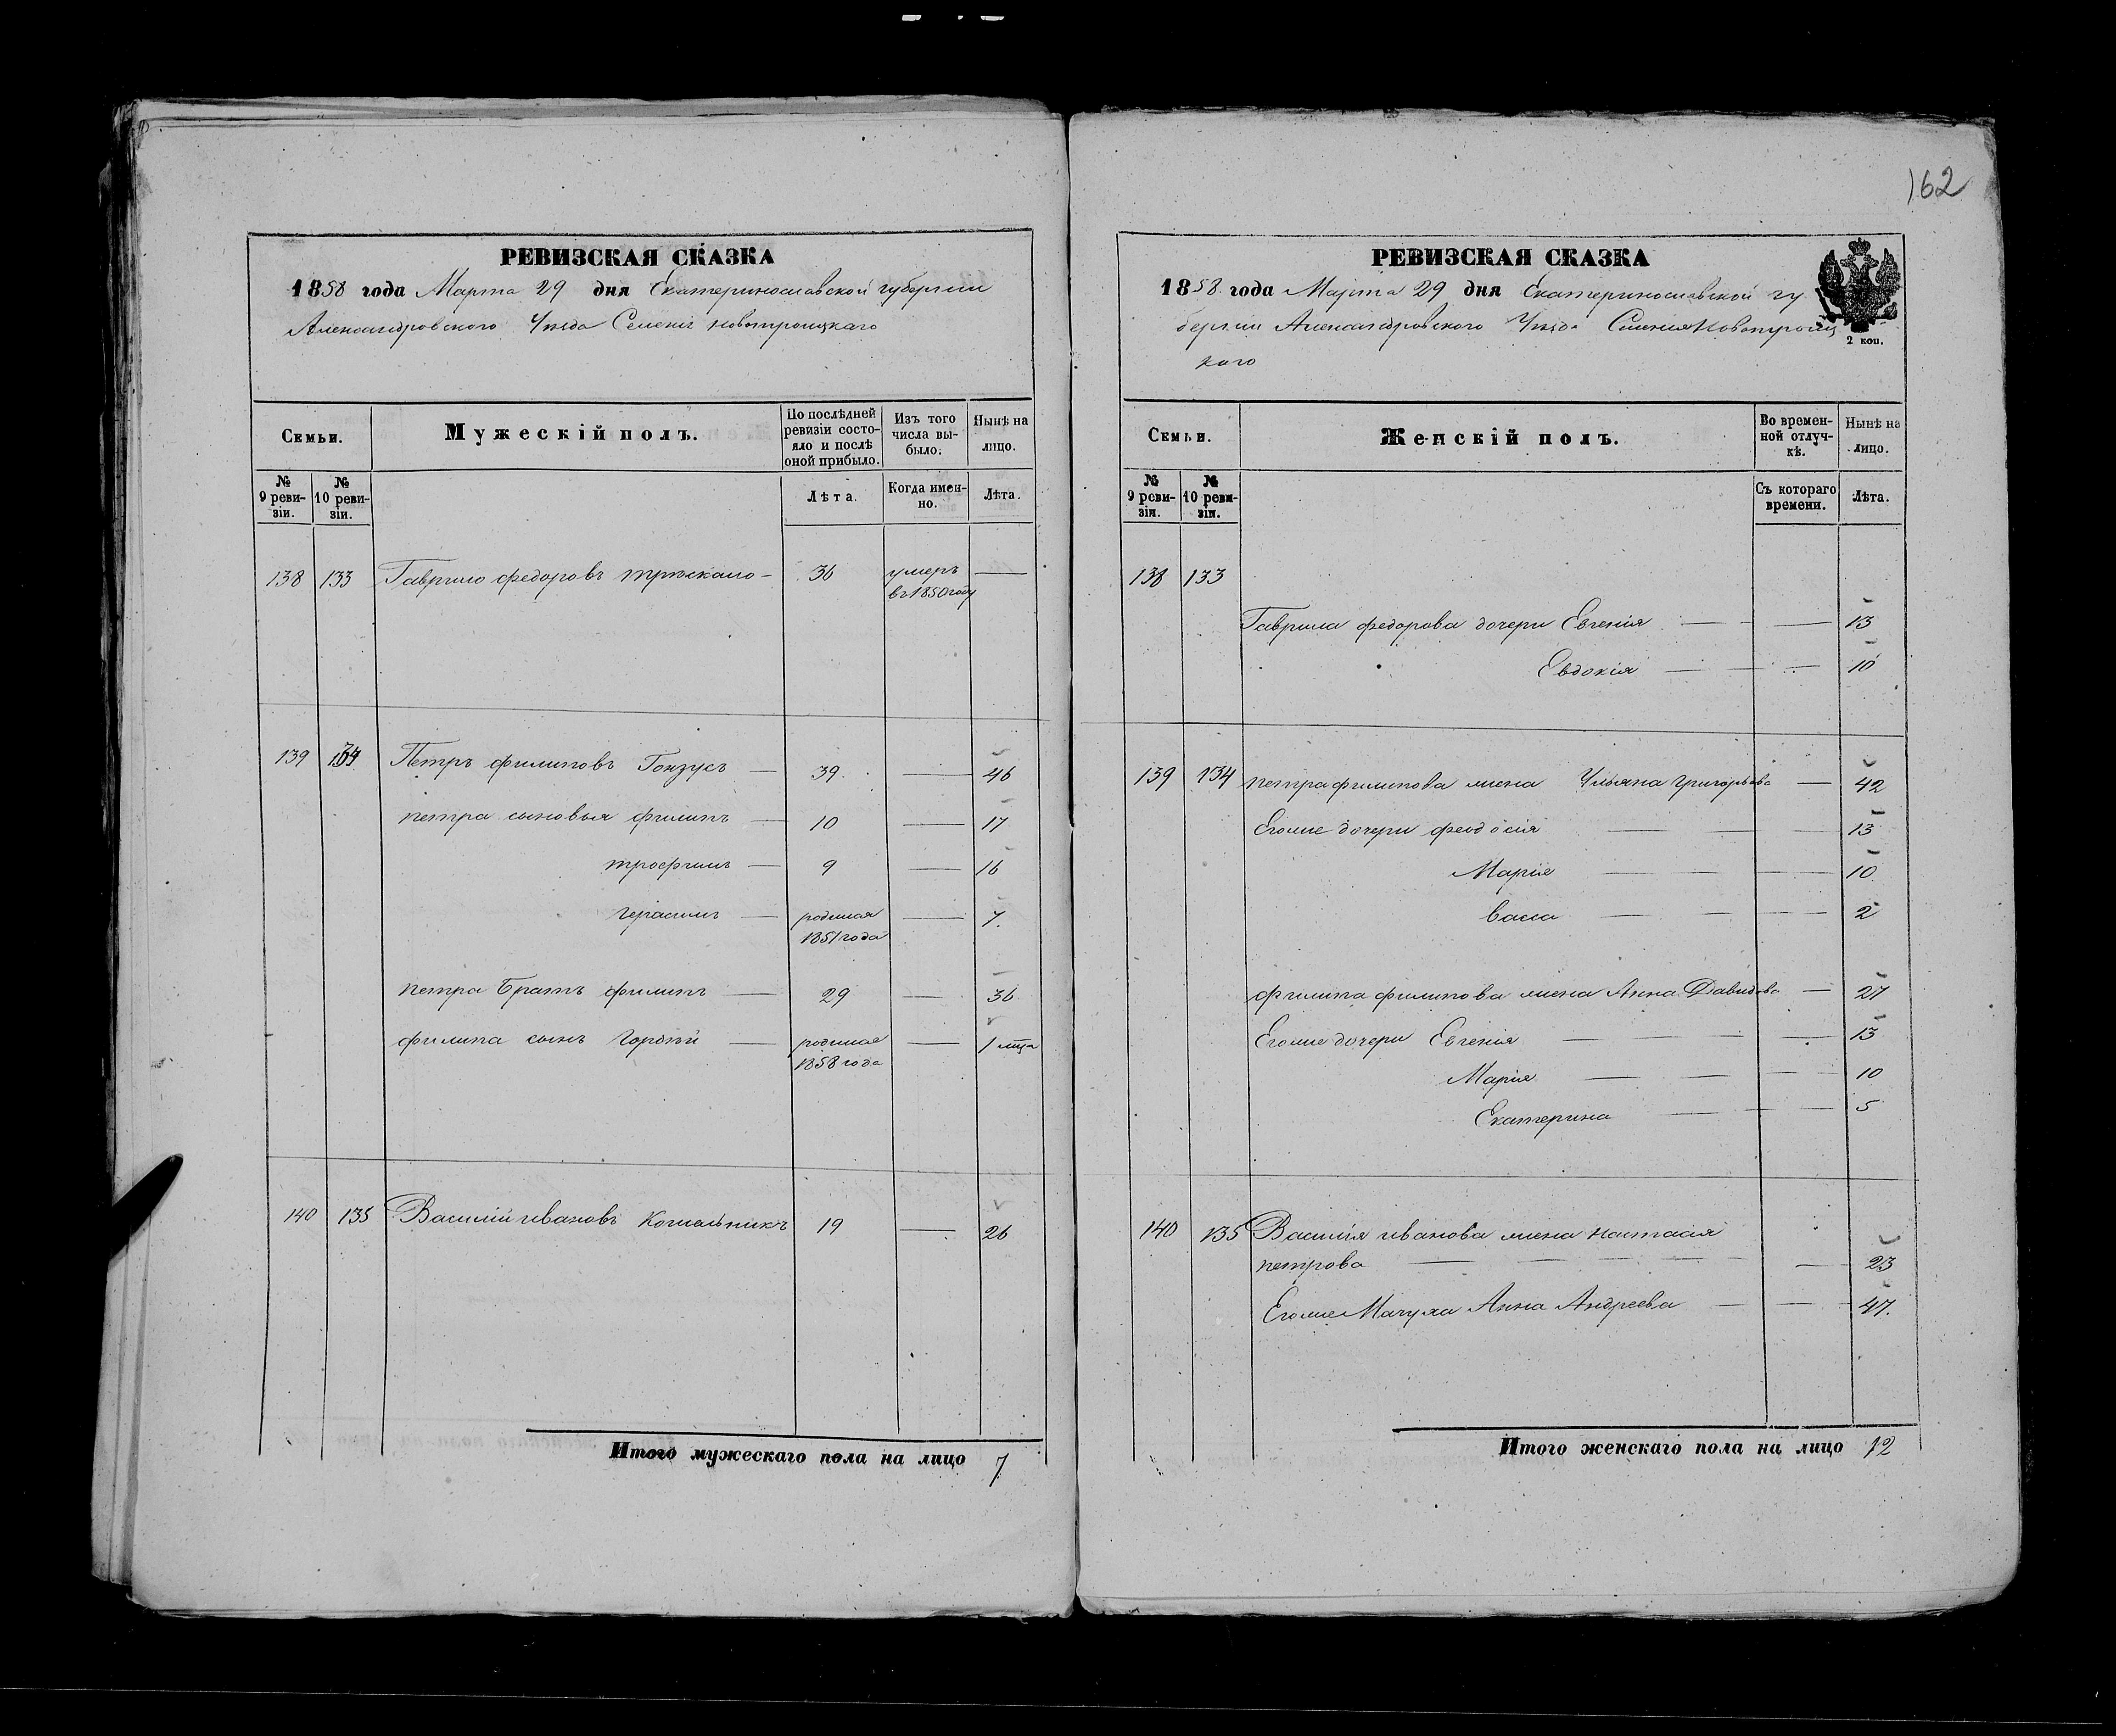 162
РЕВИЗСКАЯ СКАЗКА
1858 года Марта 29 дня Екатеринославской губернии
Александровского Уезда Селения Новотроицкаго
Семьи.
Мужескій полъ.
По послѣдней ревизіи состояло и послѣ оной прибыло.
Изъ того числа выбыло.
Нынѣ на лицо.
№ 9 ревизіи.
№ 10 ревизіи.
Лѣта.
Когда именно.
Лѣта.
138 133 Гаврило федоровъ 36 умеръ въ 1850 году —
139 134 Петръ филиповъ — 39. — 46
петра сыновья филипъ — 10 — 17
трофимъ — 9 — 16
герасимъ — родился 1851 года — 7.
петра братъ филипъ — 29 — 36
филипа сынъ Гордѣй — родился 1858 года — 1 мца
140 135 Василий ивановъ 19 — 26
Итого мужескаго пола на лицо 7
РЕВИЗСКАЯ СКАЗКА
1858 года Марта 29 дня Екатеринославской гу
бернии Александровского Уезда Селения Новотроиц
каго
2 коп.
Семьи.
Женскій полъ.
Во временной отлучкѣ.
Нынѣ на лицо.
№ 9 ревизіи.
№ 10 ревизіи.
Съ котораго времени.
Лѣта.
138 133
Гаврила федорова дочери Евгенія — — 13
Евдокія — — 10
139 134 петра филипова жена Ульяна григорьева — 42
Егоже дочери феодосія — — — 13
Марія — — — 10
васса — — — 2
филипа филипова жена Анна Давидова — 27
Егоже дочери Евгенія — — — 13
Марія — — — 10
Екатерина — — 5
140 135 Василія иванова жена настасія
петрова — — — — 23
Егоже Мачуха Анна Андреева — — 47.
Итого женскаго пола на лицо 12